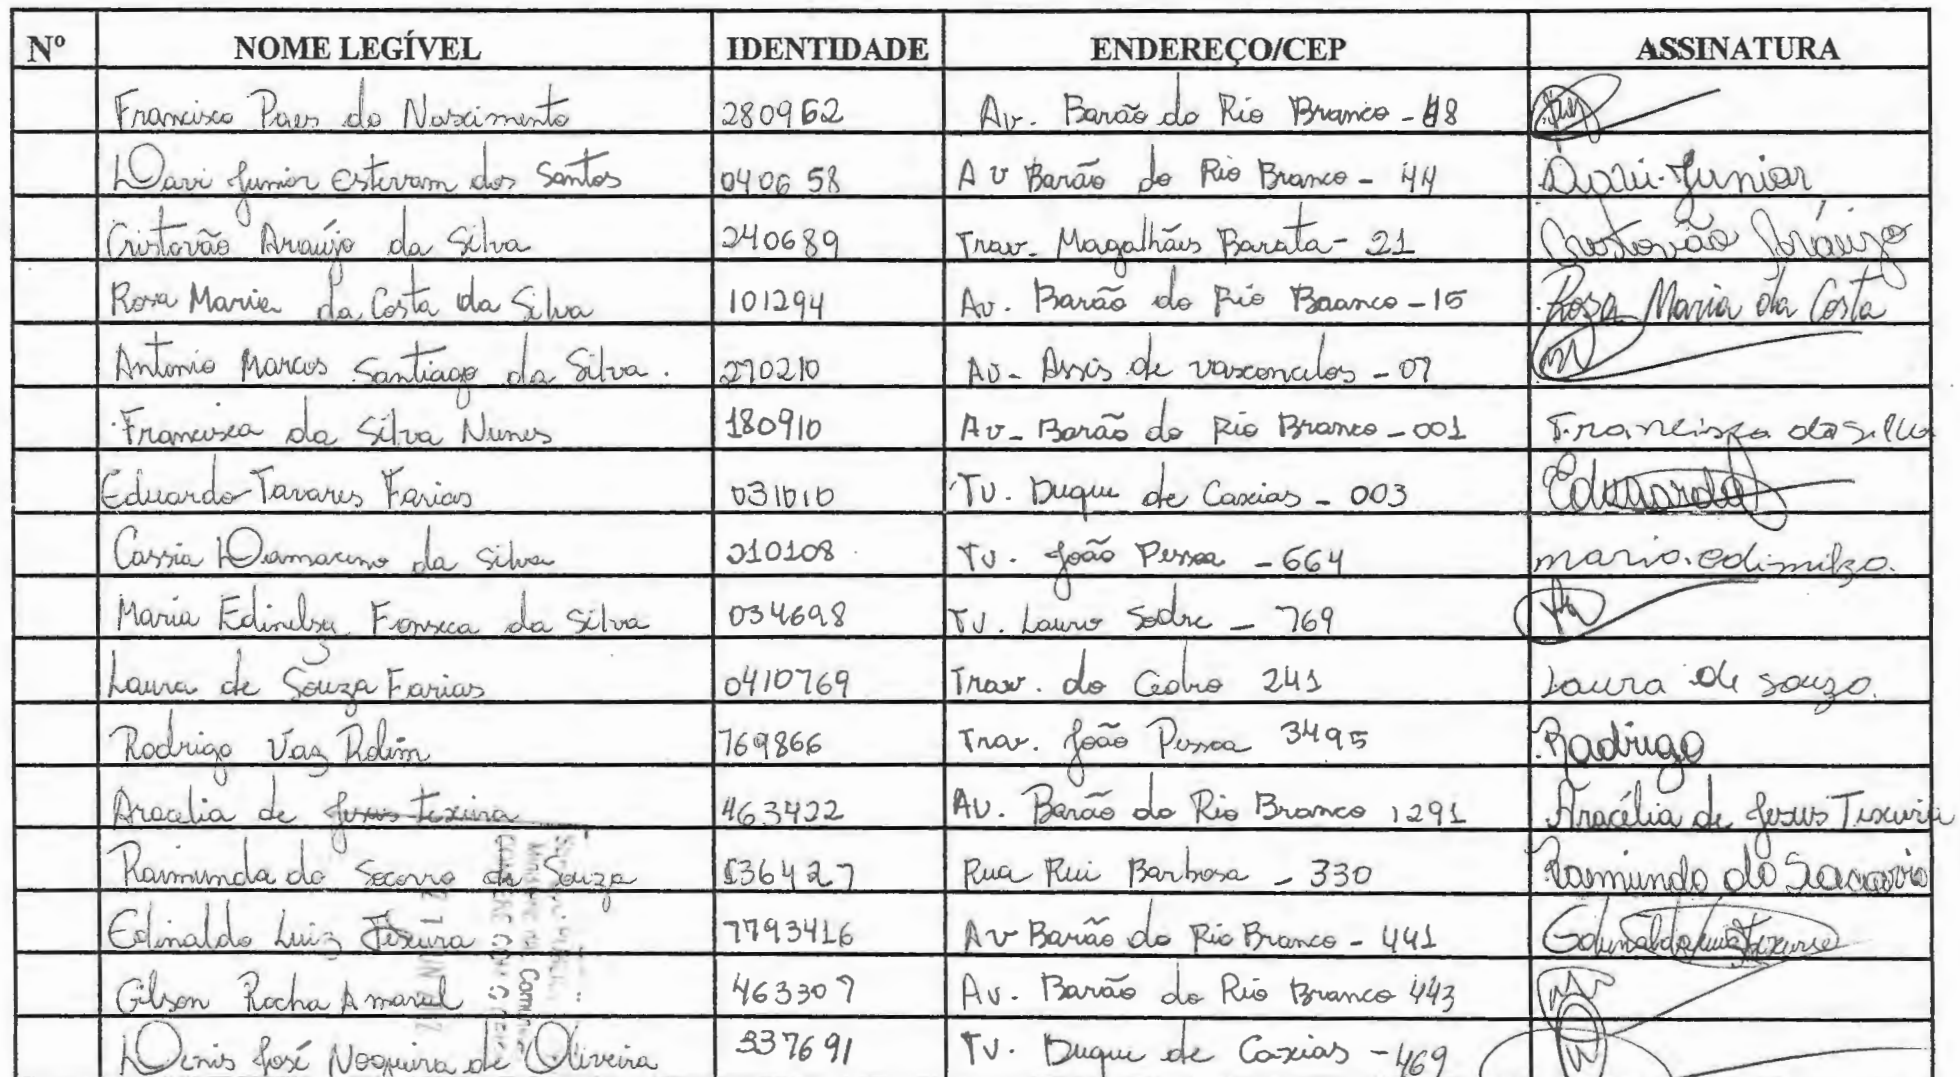 Nº NOME LEGÍVEL IDENTIDADE ENDEREÇO/CEP ASSINATURA
Francisco Paes do Nascimento 280962 Av. Barão do Rio Branco - 48
Davi Junior Estevam dos Santos 040658 AV Barão do Rio Branco - 44 Davi Junior
Cristovão Araújo da Silva 240689 Trav. Magalhães Barata - 21 Cristovão Araújo
Rosa Maria da Costa da Silva 101294 Av. Barão do Rio Baanco - 15 Rosa Maria da Costa
Antonio Marcos Santiago da Silva. 270210 Av. Assis de vasconcelos - 07
Francisca da Silva Nunes 180910 Av. Barão do Rio Branco - 001 Francisca da Silva
Eduardo Tavares Farias 031010 TV. Duque de Caxias - 003 Eduardo
Cassia Damaceno da Silva 210108 TV. João Pessoa - 664
Maria Edinelza Fonseca da Silva 034698 TV. Lauro Sodre - 769
Laura de Souza Farias 0410769 Trav. do Cedro 241 Laura de Souza
Rodrigo Vaz Rolim 769866 Trav. João Pessoa 3495 Rodrigo
Aracelia de Jesus Texeira 463422 AV. Barão do Rio Branco 1291 Aracélia de Jesus Texeira
Raimunda do Socorro de Souza 536427 Rua Rui Barbosa - 330 Raimunda do Socorro
Edinaldo Luiz Texeira 7793416 AV Barão do Rio Branco - 441 Edinaldo Luiz Texeira
Gilson Rocha Amaral 463307 Av. Barão do Rio Branco 443
Denis José Nogueira de Oliveira 337691 TV. Duque de Caxias - 469